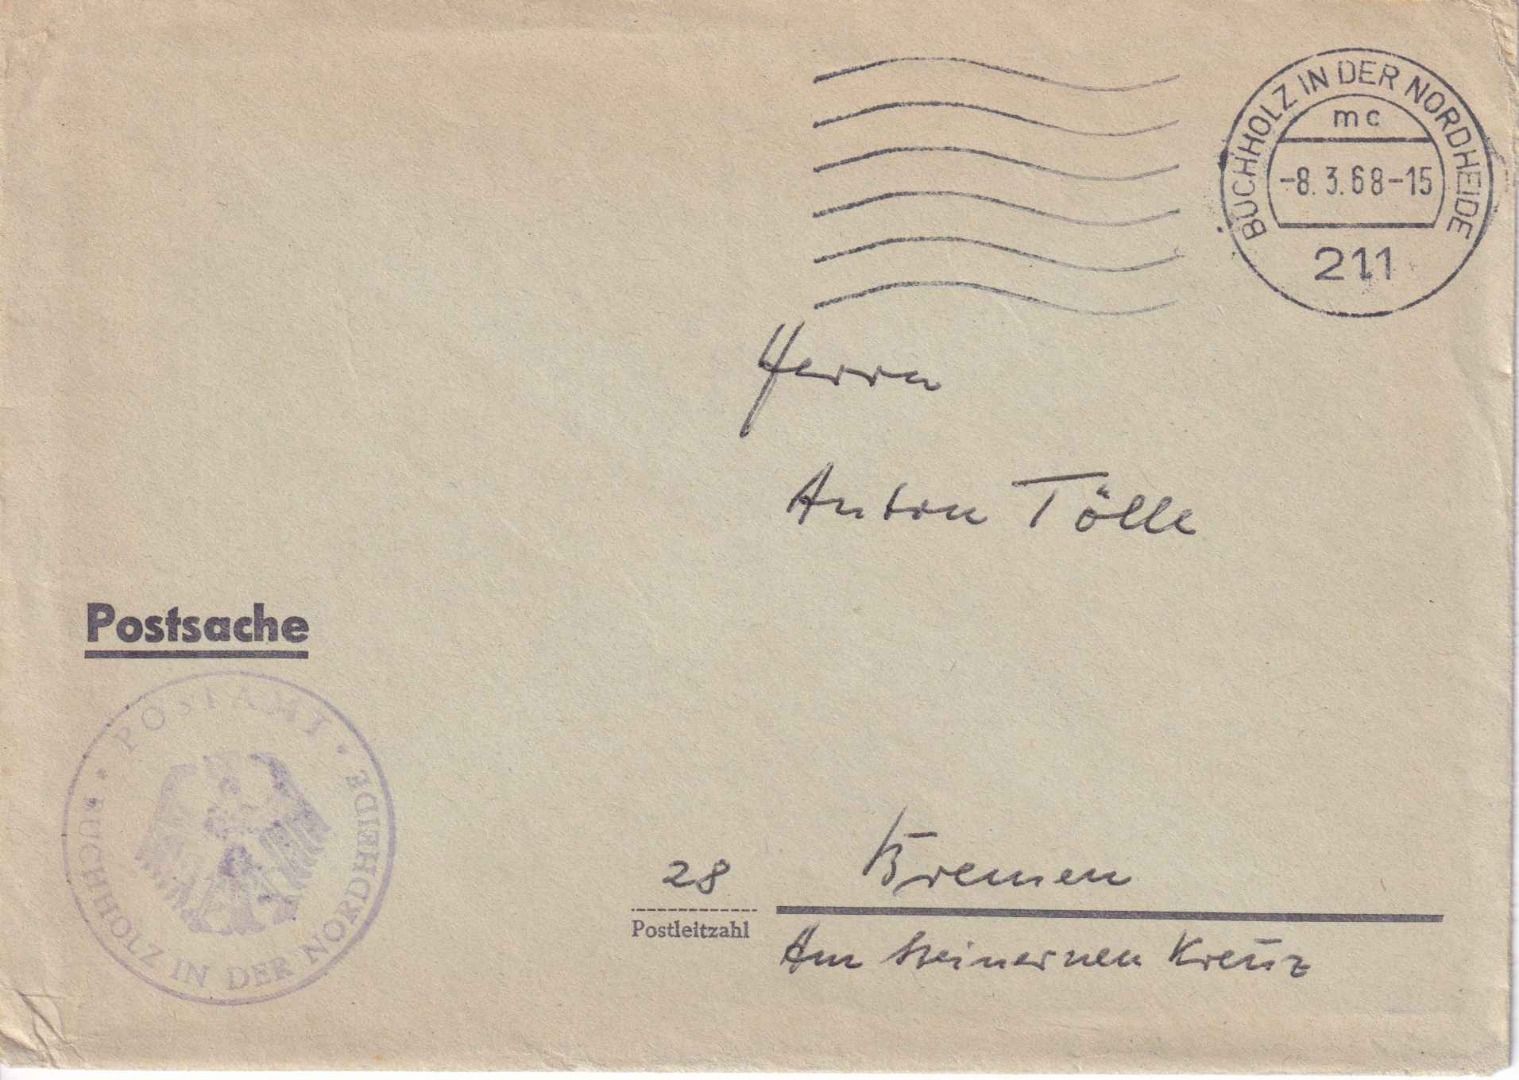 BUCHHOLZ IN DER NORDHEIDE
mc
-8.3.68-15
211
Herrn
Anton Tölle
Postsache
• POSTAMT •
BUCHHOLZ IN DER NORDHEIDE
28 Bremen
Postleitzahl
Am steinernen Kreuz